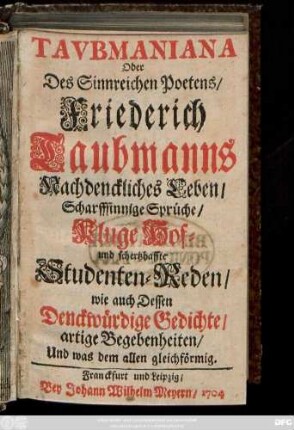 TAVBMANIANA
Oder
Des Sinnreichen Poetens/
Friederich
Taubmanns
Nachdenckliches Leben/
Scharffsinnige Sprüche/
Kluge Hof-
und schertzhaffte
Studenten-Reden/
wie auch Dessen
Denckwürdige Gedichte/
artige Begebenheiten/
Und was dem allen gleichförmig.
Franckfurt und Leipzig/
Bey Johann Wilhelm Meyern/ 1704